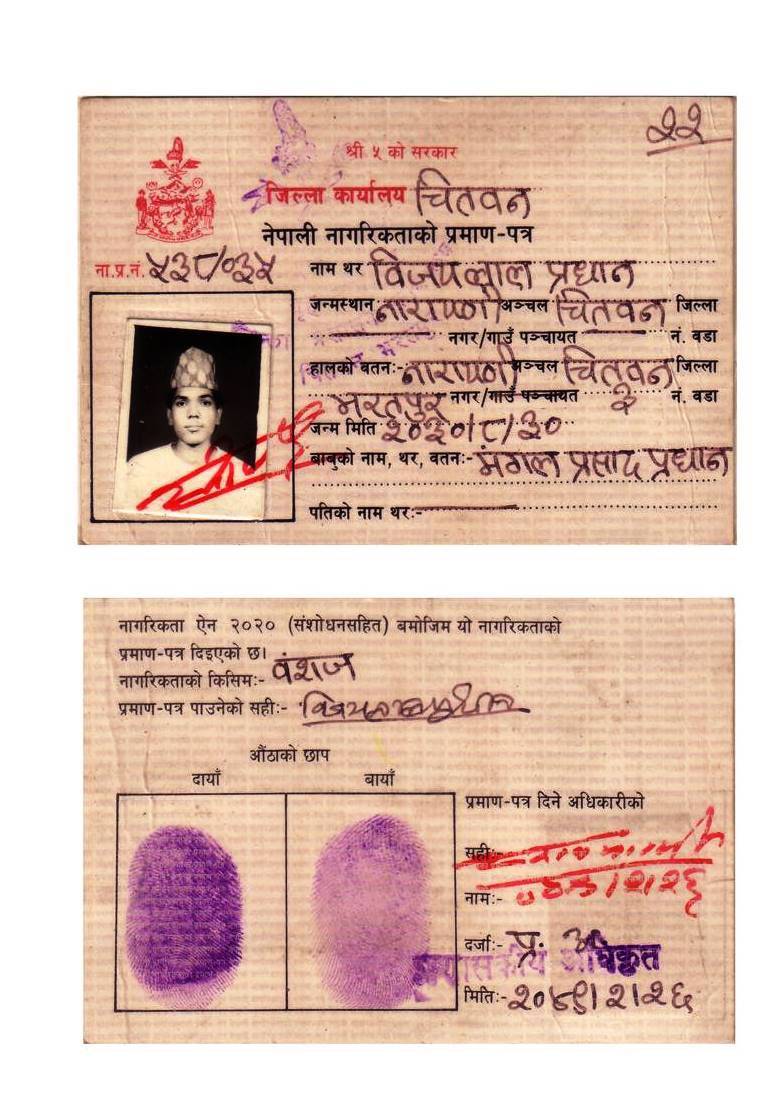 २२
श्री ५ को सरकार
जिल्ला कार्यालय चितवन
नेपाली नागरिकताको प्रमाण-पत्र
ना.प्र.नं. ५३८/०३५
नाम थर विजयलाल प्रधान
जन्मस्थान नारायणी अञ्चल चितवन जिल्ला
नगर/गाउँ पञ्चायत नं. वडा
हालको वतन:- नारायणी अञ्चल चितवन जिल्ला
भरतपुर नगर/गाउँ पञ्चायत ३ नं. वडा
जन्म मिति २०३०/८/३०
बाबुको नाम, थर, वतन:- मंगल प्रसाद प्रधान
पतिको नाम थर:-
नागरिकता ऐन २०२० (संशोधनसहित) बमोजिम यो नागरिकताको
प्रमाण-पत्र दिइएको छ।
नागरिकताको किसिम:- वंशज
प्रमाण-पत्र पाउनेको सही:-
औंठाको छाप
दायाँ बायाँ
प्रमाण-पत्र दिने अधिकारीको
सही:-
नाम:-
दर्जा:- प्र.
प्रशासकीय अधिकृत
मिति:- २०४९।२।२६